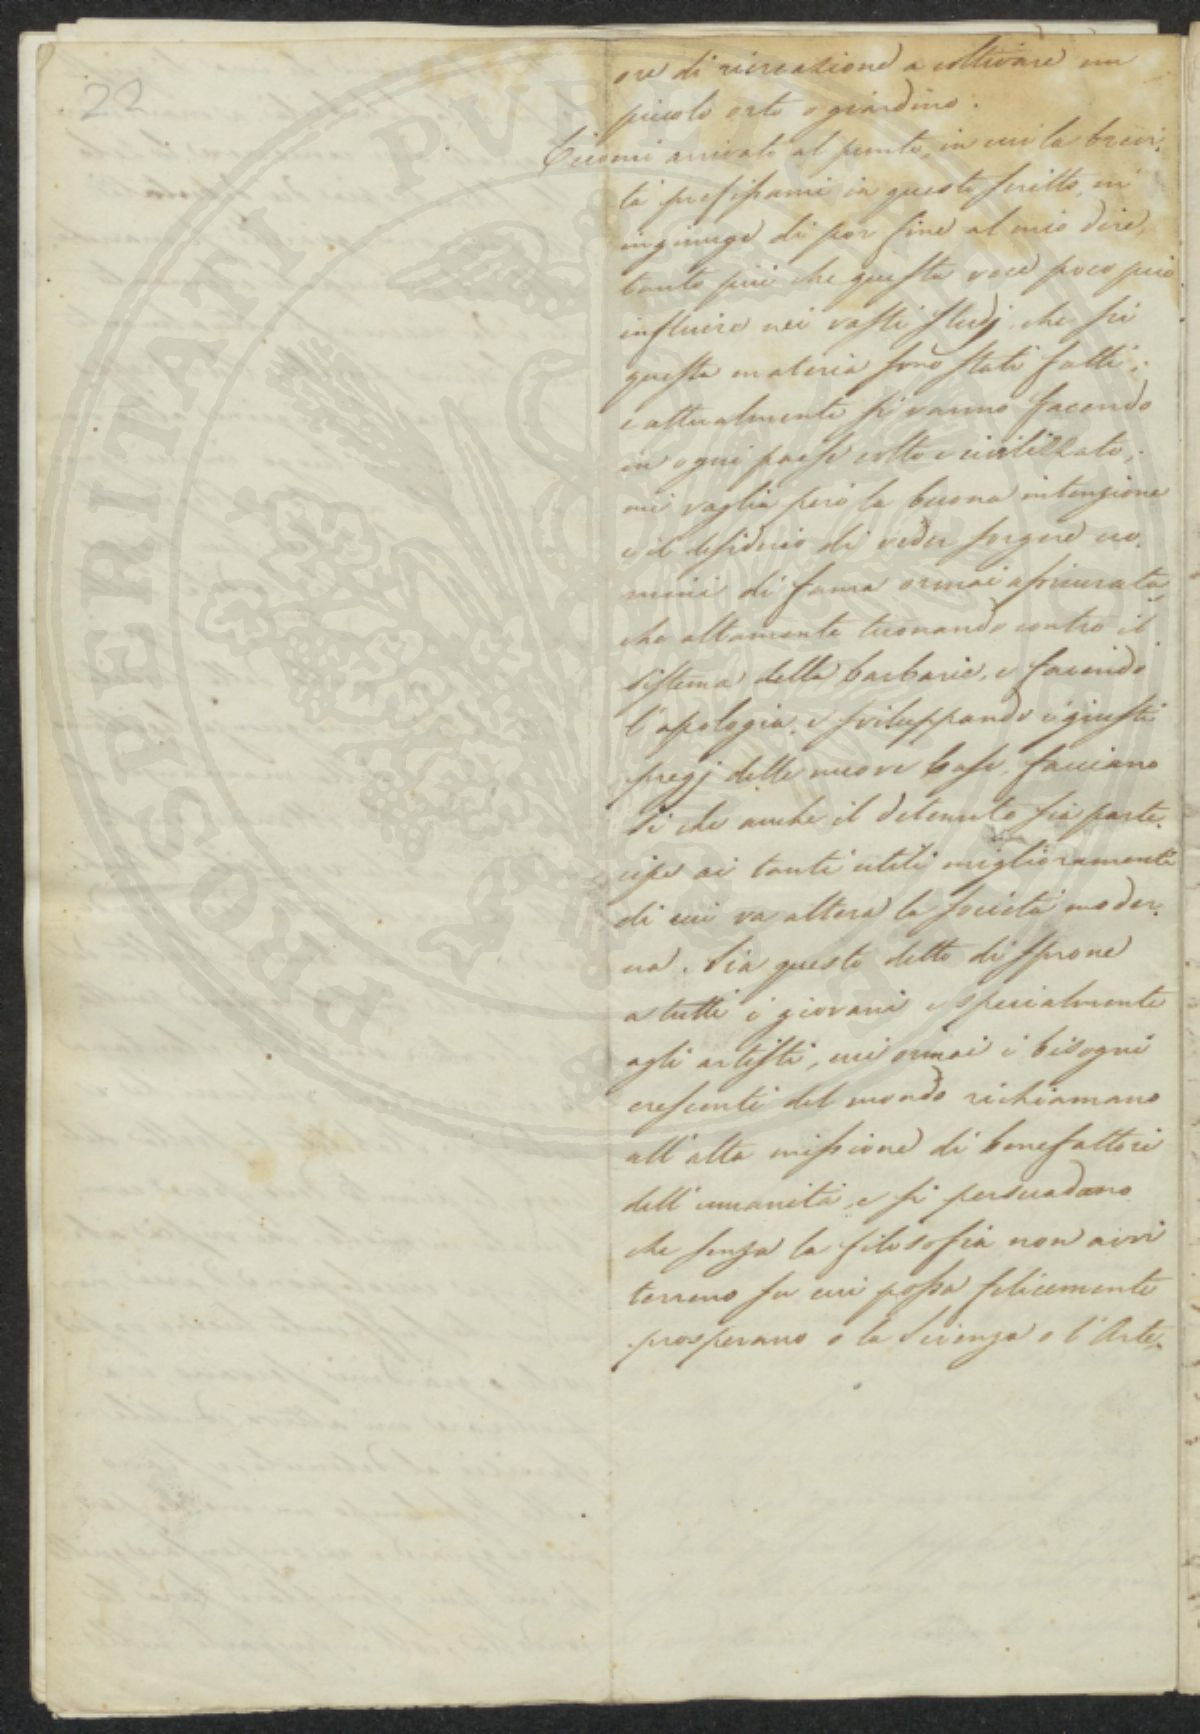 22
ore di ricreazione a coltivare un
piccolo orto o giardino.
Eccomi arrivato al punto, in cui la brevi-
tà prefissami in questo scritto, m'
ingiunge di por fine al mio dire,
tanto più che questa voce poco può
influire nei vasti studj, che su
questa materia sono stati fatti,
e attualmente si vanno facendo
in ogni paese colto e civilizzato;
mi vaglia però la buona intenzione
e il desiderio di veder sorgere uo-
mini di fama ormai assicurata
che altamente tuonando contro il
sistema della barbarie, e facendo
l'apologia, e sviluppando i giusti
pregj delle nuove base, facciano
sì che anche il detenuto sia parte-
cipe ai tanti utili miglioramenti
di cui va altera la società moder-
na. Sia questo detto di sprone
a tutti i giovani e specialmente
agli artisti, cui ormai i bisogni
crescenti del mondo richiamano
all'alta missione di benefattori
dell'umanità, e si persuadano
che senza la filosofia non avvi
terreno su cui possa felicemente
prosperano o la Scienza o l'Arte.
PROSPERITATI PVBLICAE